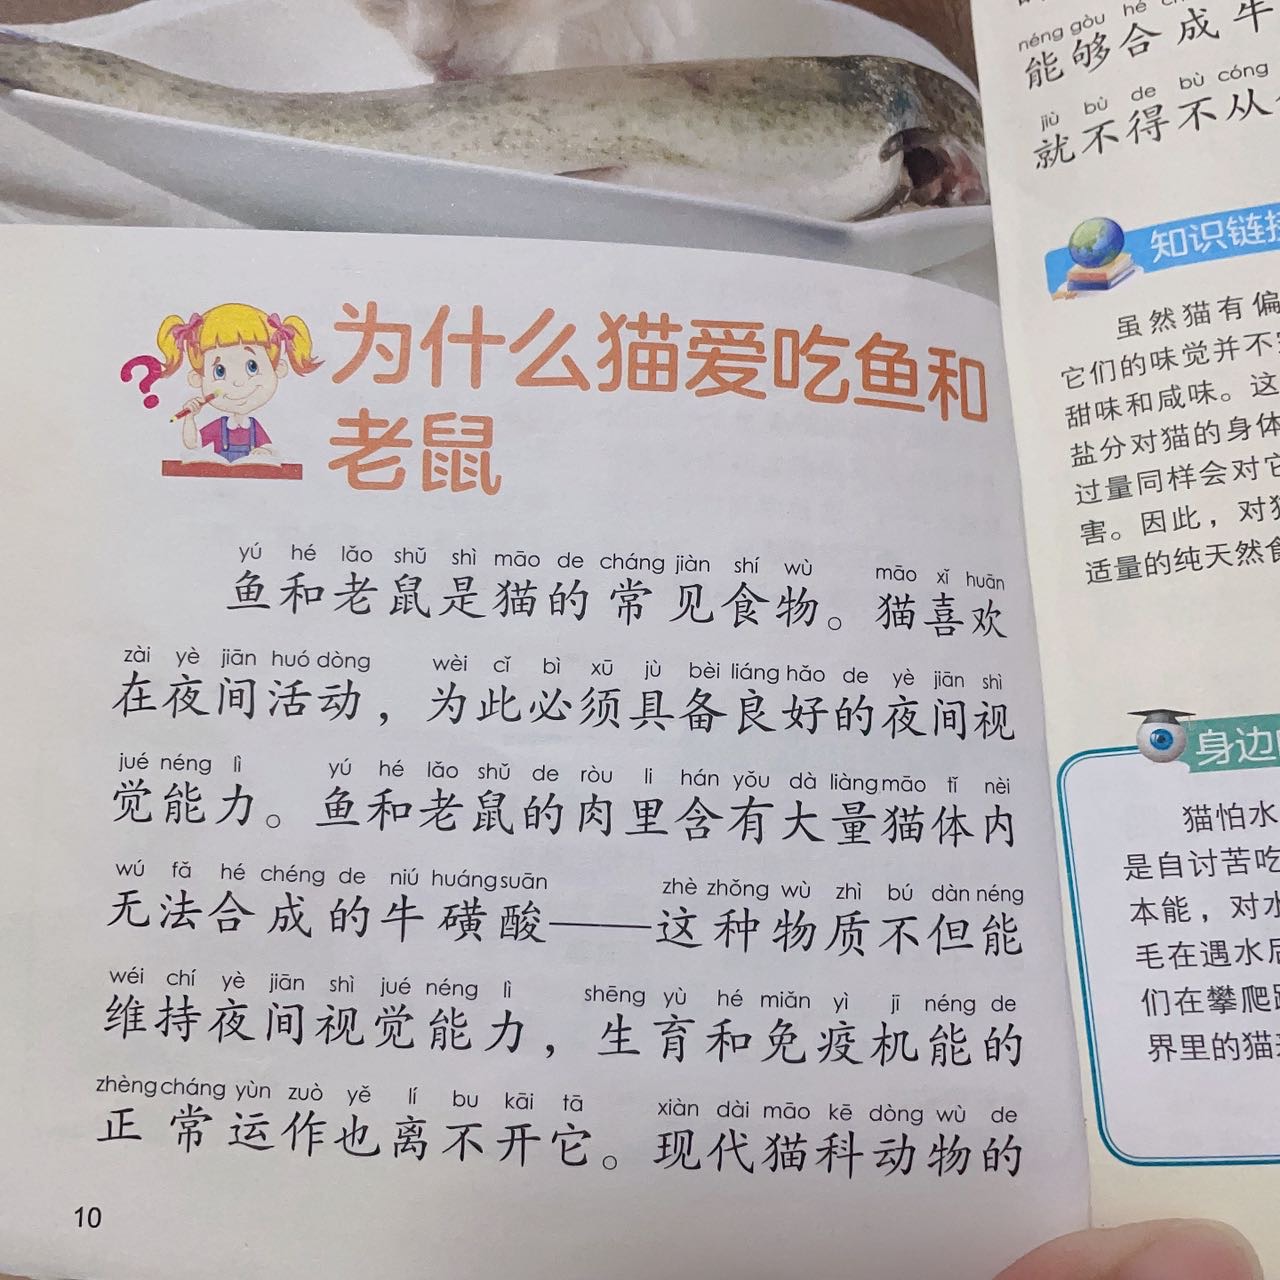 为什么猫爱吃鱼和
老鼠
yú hé lǎo shǔ shì māo de cháng jiàn shí wù māo xǐ huān
鱼和老鼠是猫的常见食物。猫喜欢
zài yè jiān huó dòng wèi cǐ bì xū jù bèi liáng hǎo de yè jiān shì
在夜间活动，为此必须具备良好的夜间视
jué néng lì yú hé lǎo shǔ de ròu li hán yǒu dà liàng māo tǐ nèi
觉能力。鱼和老鼠的肉里含有大量猫体内
wú fǎ hé chéng de niú huáng suān zhè zhǒng wù zhì bú dàn néng
无法合成的牛磺酸——这种物质不但能
wéi chí yè jiān shì jué néng lì shēng yù hé miǎn yì jī néng de
维持夜间视觉能力，生育和免疫机能的
zhèng cháng yùn zuò yě lí bu kāi tā xiàn dài māo kē dòng wù de
正常运作也离不开它。现代猫科动物的
10
néng gòu hé
能够合成牛
jiù bù de bù cóng
就不得不从
知识链接
虽然猫有偏
它们的味觉并不
甜味和咸味。这
盐分对猫的身体
过量同样会对它
害。因此，对猫
适量的纯天然食
身边
猫怕水
是自讨苦吃
本能，对水
毛在遇水后
们在攀爬
界里的猫